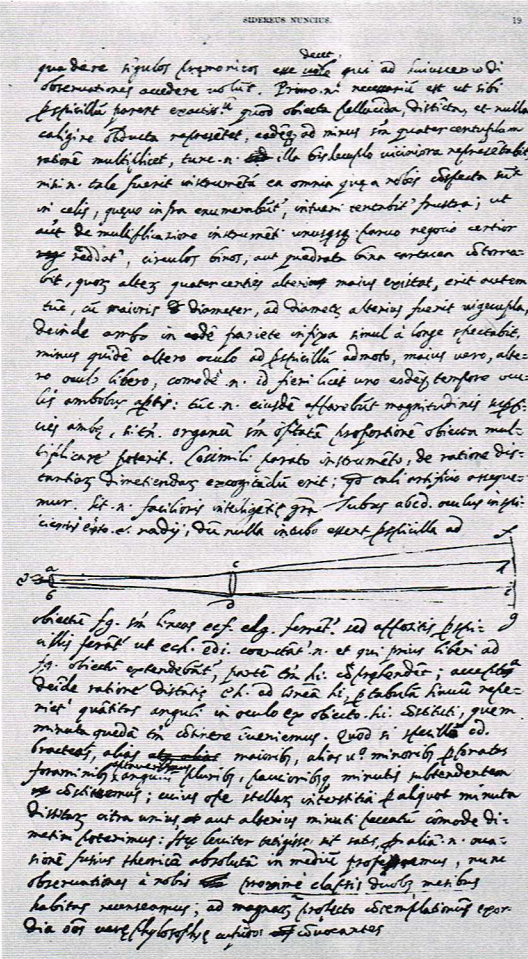 SIDEREUS NUNCIUS. 19
decet,
quadere sigulos premonitos esse qui ad huiuscemodi
observationes accedere volūt. Primo .n. necessariū est ut sibi
pspicillū parent exactiss. quod obiecta pellucida, distīcta, et nulla
caligine obducta represētet, eadēq ad minus sm quatercentuplam
ratione multiplicet, tunc .n. illa bisdecuplo viciniora represētabit
nisi .n. tale fuerit instrumētū ea omnia que a nobis cōspecta sūt
in celis, queve infra enumerabūt, intueri tentabit frustra; ut
aūt de multiplicatione instrumēti unusqsq parvo negocio certior
reddat, circulos binos, aut quadrata bina cartacea cōtorna-
bit, quoȝ alteȝ quatercenties altero maius existat, erit autem
tūc, cū maioris diameter, ad diametȝ alterius fuerit vigecupla,
deinde ambo in eadē pariete infixa simul à longe spectabit,
minus quidē altero oculo ad pspicillū admoto, maius vero, alte-
ro oculo libero, comode .n. id fieri licet uno eodēq tempore ocu-
lis ambobus aptis: tūc .n. eiusdē apparebūt magnitudinis supfi-
cies ambe, si tn. organū sm optatā proportionē obiecta mul-
tiplicare poterit. Cosimili parato instrumēto, de ratione dis-
tantiaȝ dimetiendaȝ excogitādū erit; qd tali artificio asseque-
mur. Sit .n. facilioris intelligētie gra Tubus abcd. oculus inspi-
cientis esto .e. radij, dū nulla in tubo essent pspicilla ad
e a b c d f h i g
obiectū fg. sm lineas ecf. edg. ferret. sed appositis pspi-
cillis ferāt ut ech. edi. coarctāt .n. et qui prius liberi ad
fg. obiectū extendebāt, partē tm hi. cōprehendēt; accepta
deīde ratione distātie eh. ad lineā hi, p tabulā sinuū repe-
riet quātitas anguli in oculo ex obiecto hi. cōstituti, quem
minuta quedā tm cōtinere iveniemus. Quod si specillo cd.
bracteas, alias maiorib, alias v° minorib pforatas
foraminib angulis plurib, pauciorib minutis subtendentem
cōstituemus; cuius ope stellaȝ interstitia p aliquot minuta
distitaȝ citra unius aut alterius minuti peccatū cōmode di-
metiri poterimus: Hec leviter tetigisse sit satis, p aliā .n. occa-
sionē fusius theoricā absolutā in mediū proferemus, nunc
observationes à nobis proxime elapsis duobȝ mensibus
habitas recenseamus; ad magnaȝ profecto cōtemplationū exor-
dia oēs vere phylosophie cupidos cōvocantes